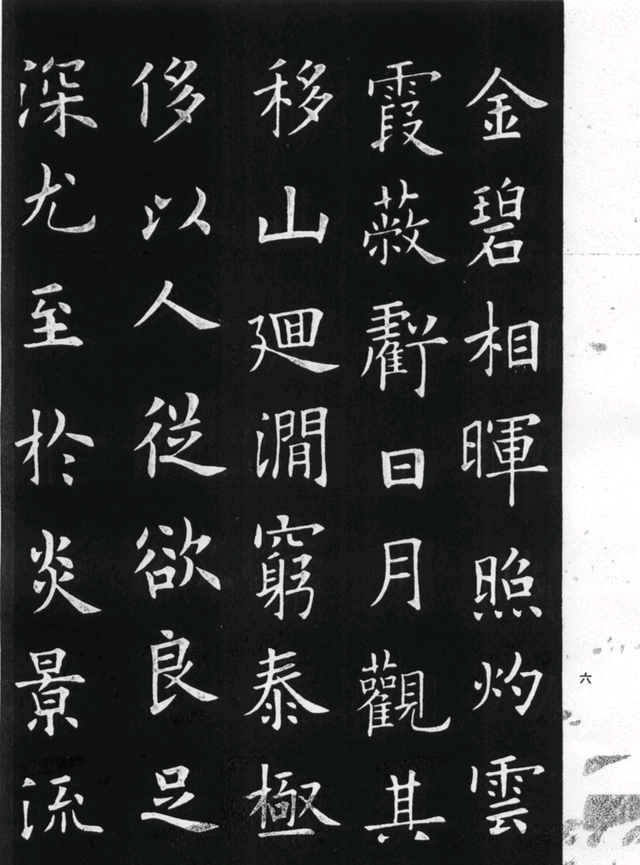 金碧相暉照灼雲
霞蔽虧日月觀其
移山迴澗窮泰極
侈以人從欲良足
深尤至於炎景流
六